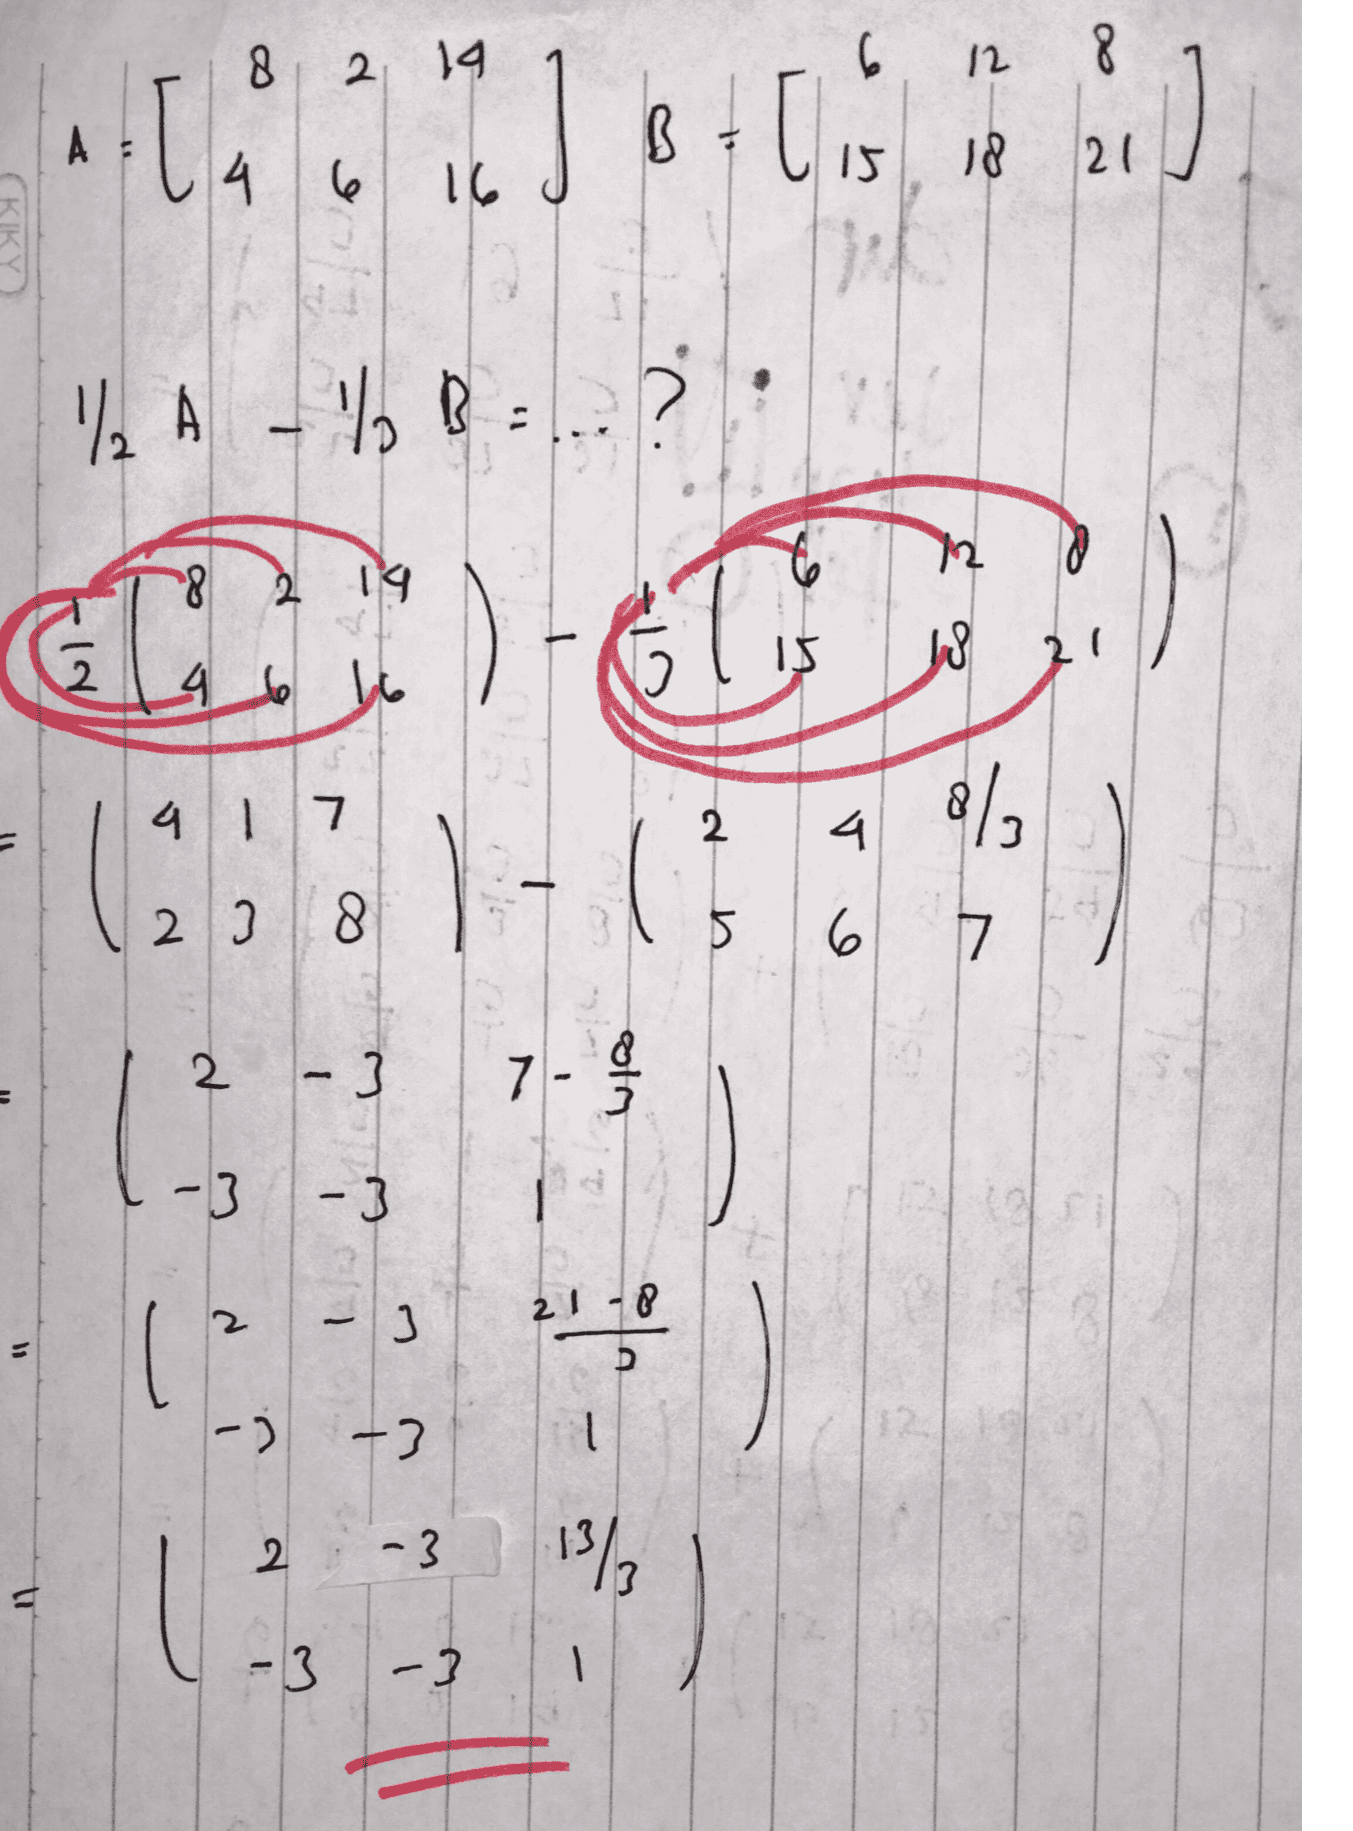 A = [ 8 2 14 ] B = [ 6 12 8 ]
4 6 16 15 18 21
KIKY
1/2 A - 1/3 B = ... ?
1/2 ( 8 2 14 ) - 1/3 ( 6 12 8 )
4 6 16 15 18 21
= ( 4 1 7 ) - ( 2 4 8/3 )
2 3 8 5 6 7
= ( 2 -3 7 - 8/3 )
-3 -3 1
= ( 2 -3 21-8/3 )
-3 -3 1
= ( 2 -3 13/3 )
-3 -3 1